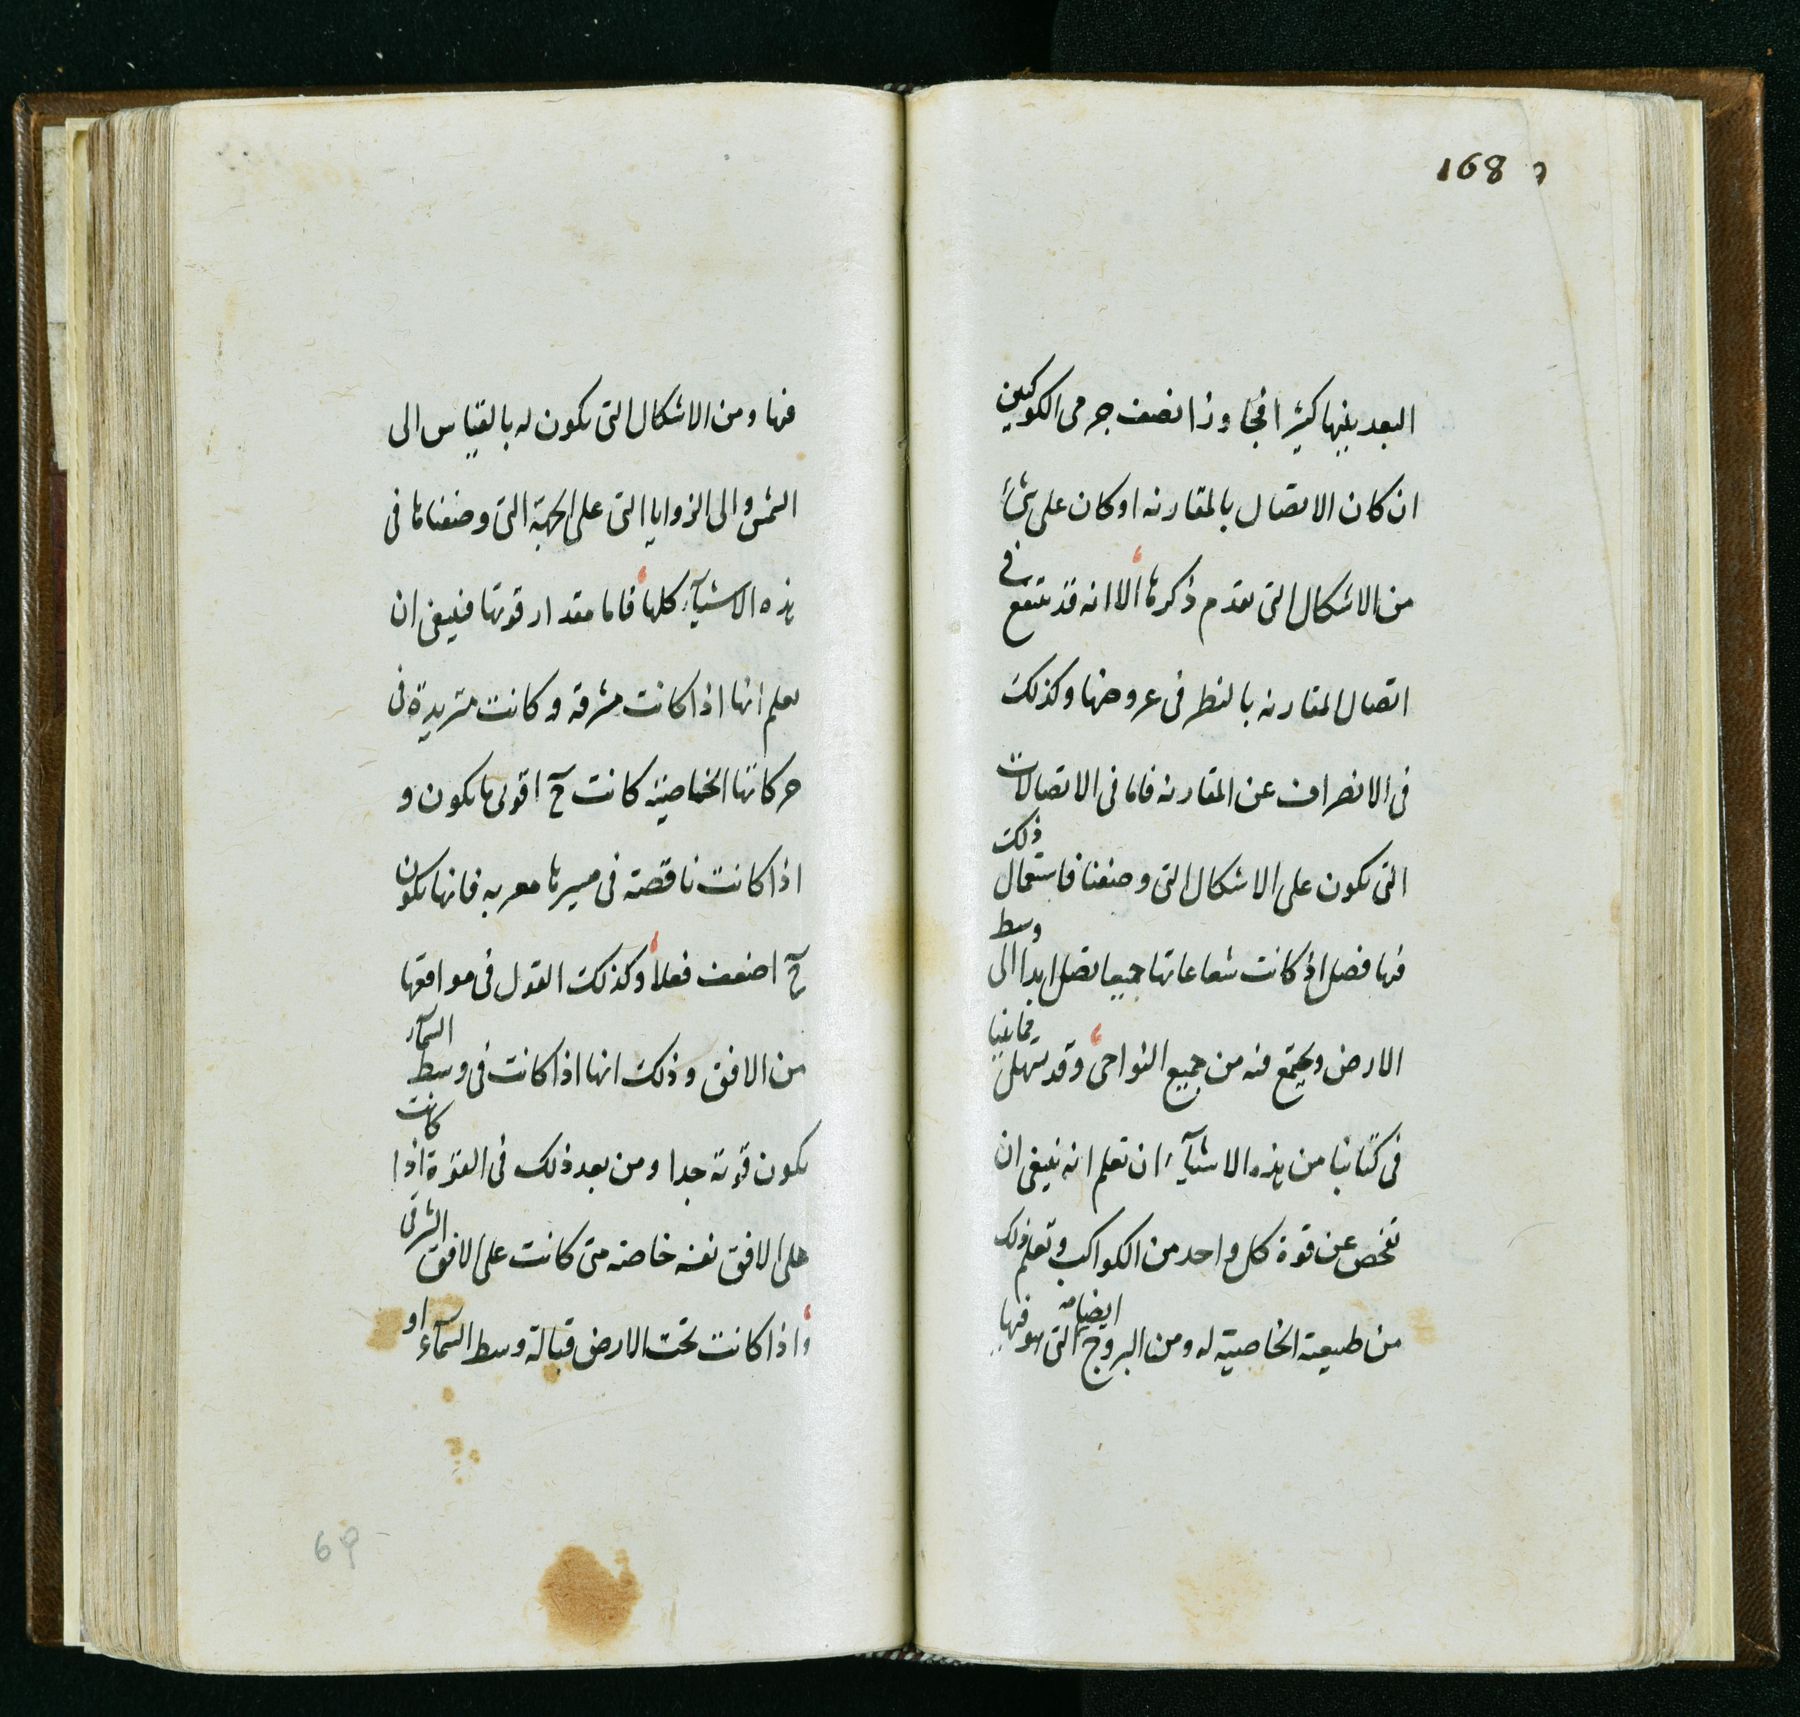 168
البعد بينها كثيرا فيجاوزا نصف جرمى الكوكبين
ان كان الاتصال بالمقارنه او كان على شئ
من الاشكال التى تقدم ذكرها الا انه قد ينتفع فى
اتصال المقارنه بالنظر فى عروضها وكذلك
فى الانصراف عن المقارنه فاما فى الاتصالات
التى يكون على الاشكال التى وصفنا فاستعمال ذلك
فيها فضل اذ كانت شعاعاتها جميعا تصل ابدا الى وسط
الارض ويجتمع فيه من جميع النواحى وقد يتهيأ فيما بنينا
فى كتابنا من هذه الاشيآء ان تعلم انه ينبغى ان
تفحص عن قوة كل واحد من الكواكب وتعلم ذلك
من طبيعته الخاصية له ومن البروج ايضا التى هو فيها
فيها ومن الاشكال التى يكون له بالقياس الى
الشمس والى الزوايا التى على الجهة التى وصفناها فى
هذه الاشيآء كلها فاما مقدار قوتها فينبغى ان
تعلم انها اذا كانت مشرقه وكانت متزيدة فى
حركاتها الخاصية كانت ح اقوى ما يكون و
اذا كانت ناقصة فى مسيرها مغربه فانها يكون
ح اضعف فعلا وكذلك القول فى مواقعها
من الافق وذلك انها اذا كانت فى وسط السمآء
يكون قوية جدا ومن بعد ذلك فى القوة اذا كانت
على الافق نفسه خاصة متى كانت على الافق الشرقى
واذا كانت تحت الارض قبالة وسط السمآء او
69